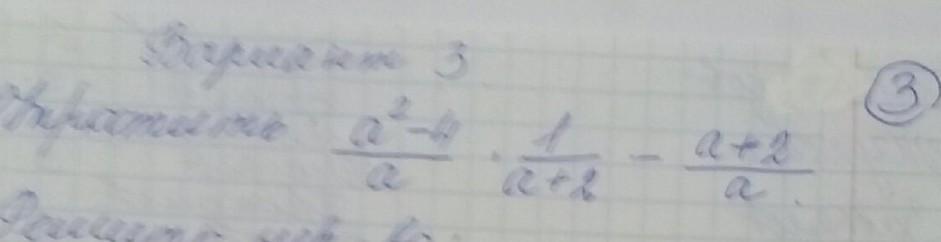 Вариант 3
3
Упростить (a²-4)/a · 1/(a+2) - (a+2)/a.